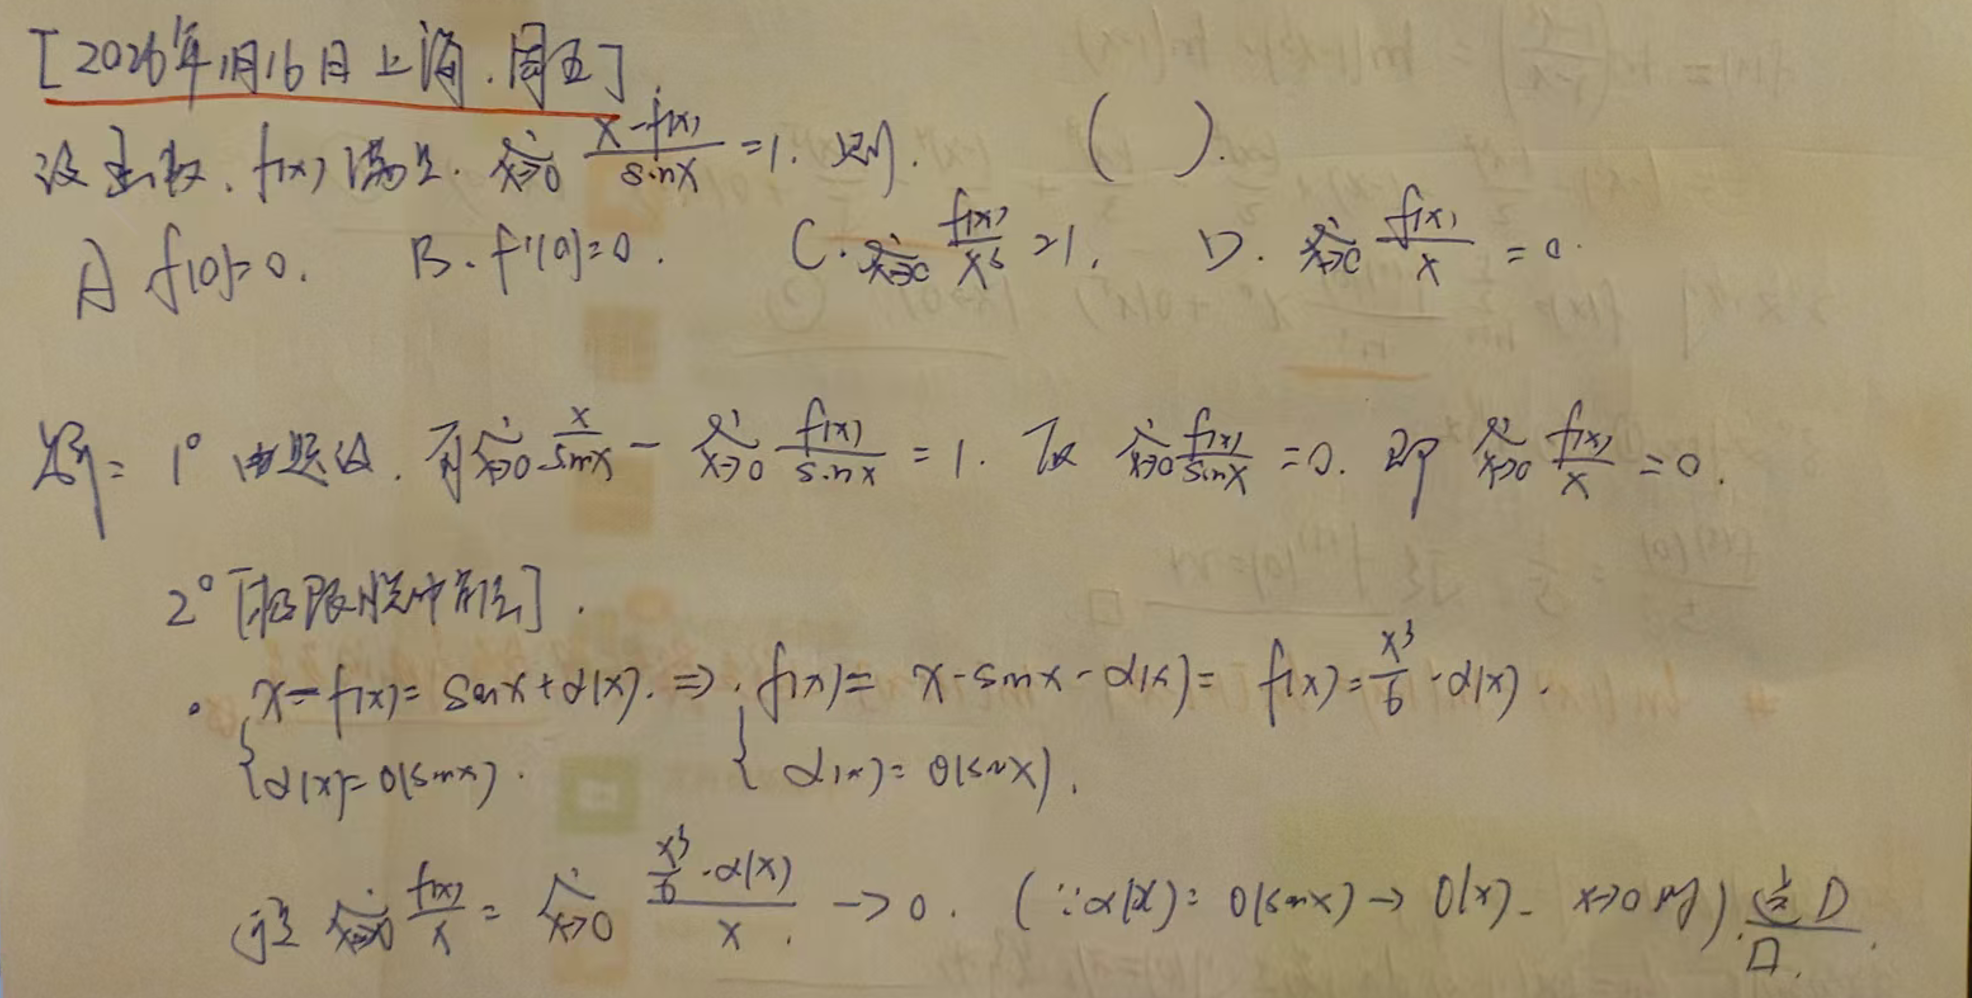 [2026年1月16日上海.周五]
设函数. f(x)满足. lim_{x→0} (x-f(x))/sinx =1. 则. ( ).
A f(0)=0. B. f'(0)=0. C. lim_{x→0} f(x)/x³ =1. D. lim_{x→0} f(x)/x = 0.
解: 1° 由题设. 有 lim_{x→0} x/sinx - lim_{x→0} f(x)/sinx = 1. 故 lim_{x→0} f(x)/sinx =0. 即 lim_{x→0} f(x)/x =0.
2° [极限脱帽法].
x-f(x)= sinx+α(x). ⇒. f(x)= x-sinx-α(x)= f(x)= x³/6 -α(x).
{α(x)=o(sinx). { α(x)= o(sinx).
lim_{x→0} f(x)/x = lim_{x→0} (x³/6 -α(x))/x → 0. (∵α(x)= o(sinx)→ o(x). x→0时). 选D
□.